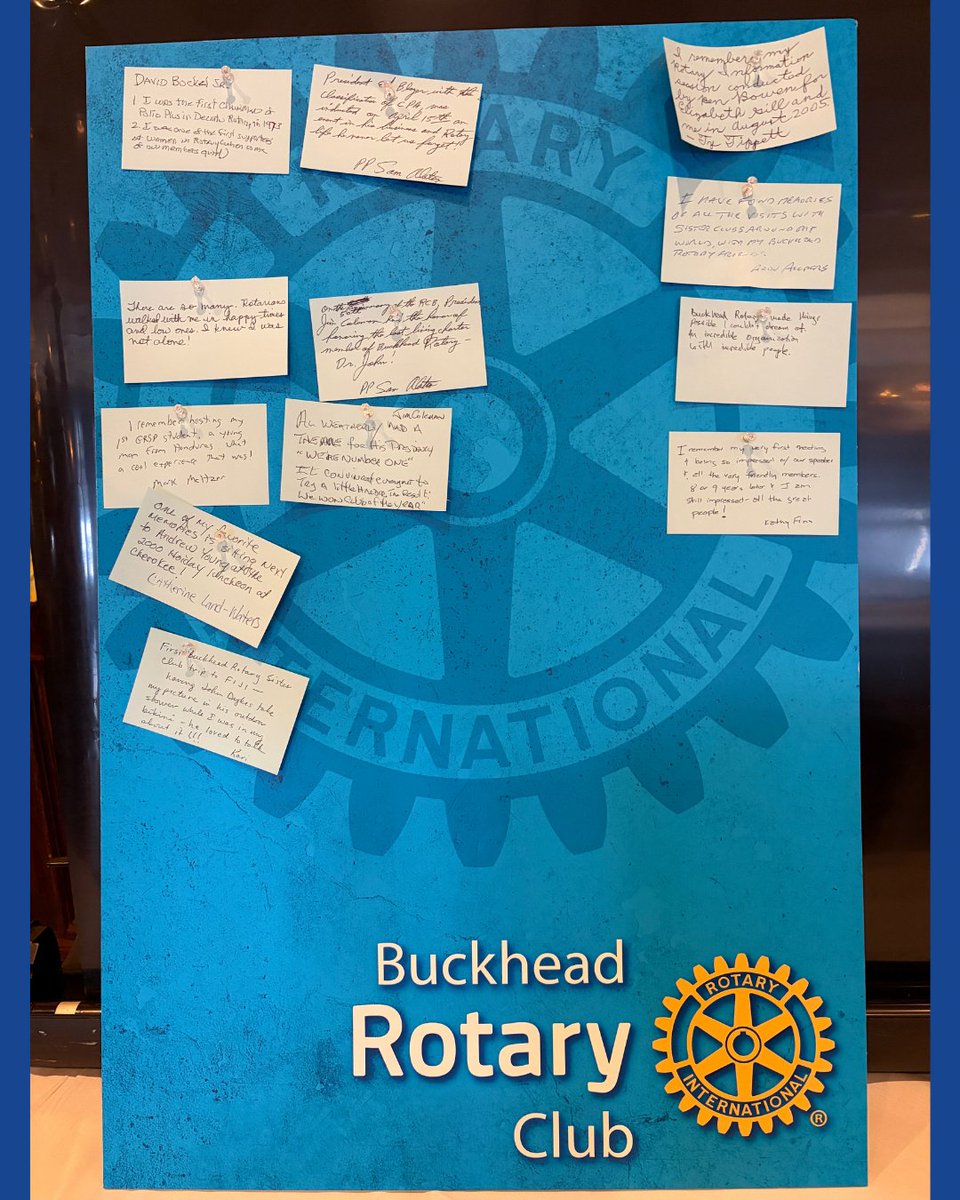 DAVID BOCKEL SR.
1. I WAS THE FIRST CHAIRMAN OF
POLIO PLUS IN DECATUR ROTARY, IN
2. I WAS ONE OF THE FIRST SUPPORTERS
OF WOMEN IN ROTARY
OF OUR MEMBERS QUIT)
President Blager with the
classification of CPA, was
inducted on April 15th an
event in his business and Rotary
life he now let us forget!
PP Sam
There are so many. Rotarians
walked with me in happy times
and low ones. I knew I was
not alone!
On the 60th of the RCB, President
Jim Coleman had the honor of
honoring the last living charter
member of Buckhead Rotary –
Dr. John!
PP Sam
I remember hosting my
1st GRSP student a young
man from Honduras. What
a cool experience that was!
Mark Meltzer
Jim Coleman
AL WEATHERLY HAD A
THEME FOR HIS PRESIDENCY
"WE'RE NUMBER ONE"
IT CONVINCED everyone to
TRY A little HARDER, THE RESULT:
WE WON CLUB OF THE YEAR"
One of my favorite
memories is sitting next
to Andrew Young at the
2000 Holiday luncheon at
Cherokee!
Catherine Land-Waters
First Buckhead Rotary Sister
Club trip to FIJI –
having John Dykes take
my picture in his outdoor
shower while I was in my
bikini – he loved to talk
about it!!!
Kari
I remember my
Rotary Information
session conducted
by Ben Bowen for
Elizabeth Gill and
me in August 2005.
– Ty Tippett
I HAVE FOND MEMORIES
OF ALL THE VISITS WITH
SISTER CLUBS AROUND THE
WORLD WITH MY BUCKHEAD
ROTARY FRIENDS.
Buckhead Rotary made things
possible I couldn't dream of
An incredible organization
with incredible people.
I remember my very first meeting,
& being so impressed w/ our speaker
& all the very friendly members.
8 or 9 years later & I am
still impressed – all the great
people!
Kathy Finn
ROTARY
INTERNATIONAL
Buckhead
Rotary
Club
ROTARY
INTERNATIONAL
®